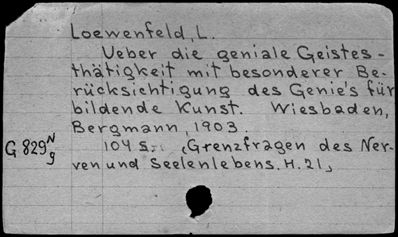 Loewenfeld, L.
Ueber die geniale Geistes-
thätigkeit mit besonderer Be-
rücksichtigung des Genie's für
bildende Kunst. Wiesbaden,
Bergmann, 1903.
G 829 N/g
104 S. (Grenzfragen des Ner-
ven und Seelenlebens. H. 21)